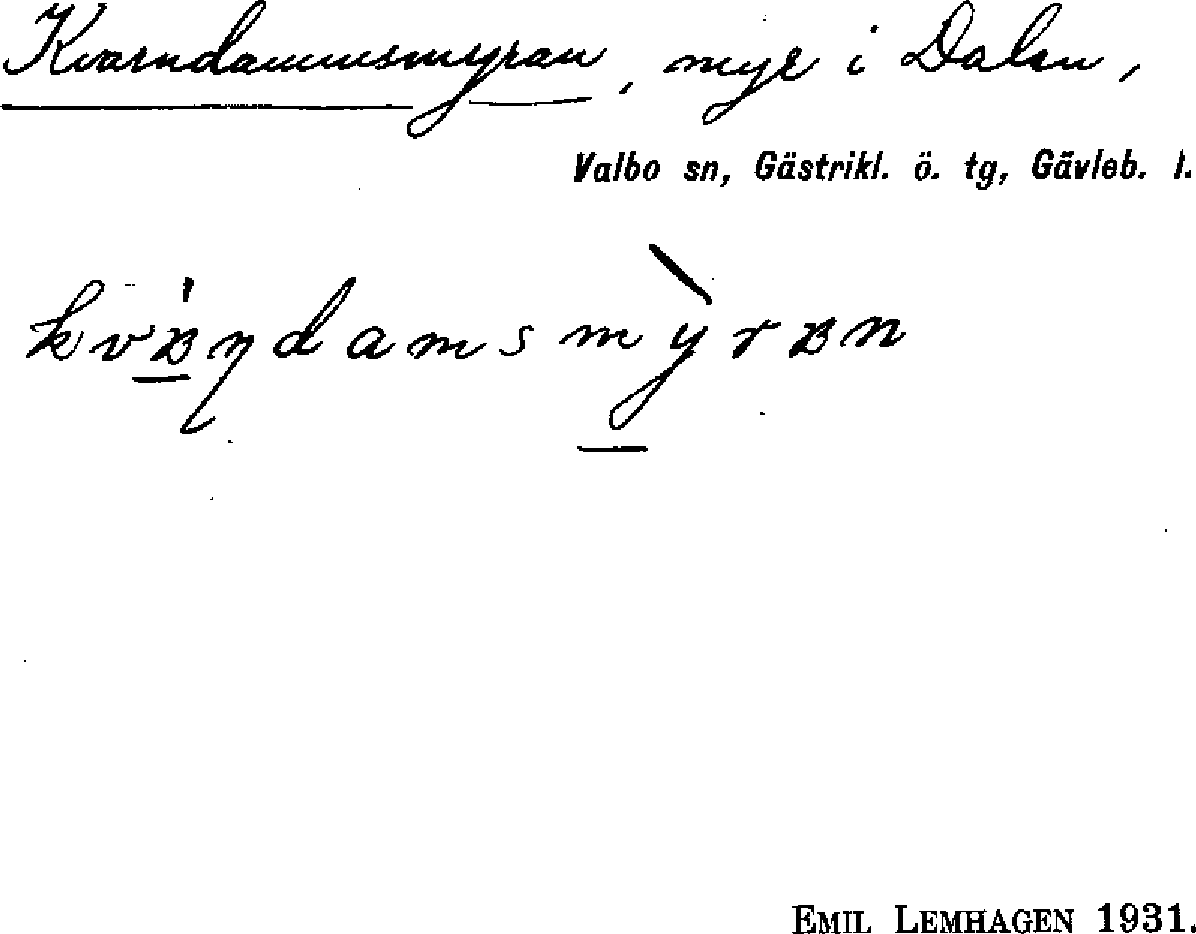 Kvarndammsmyran, myr i Dalen,
Valbo sn, Gästrikl. ö. tg, Gävleb. l.
EMIL LEMHAGEN 1931.